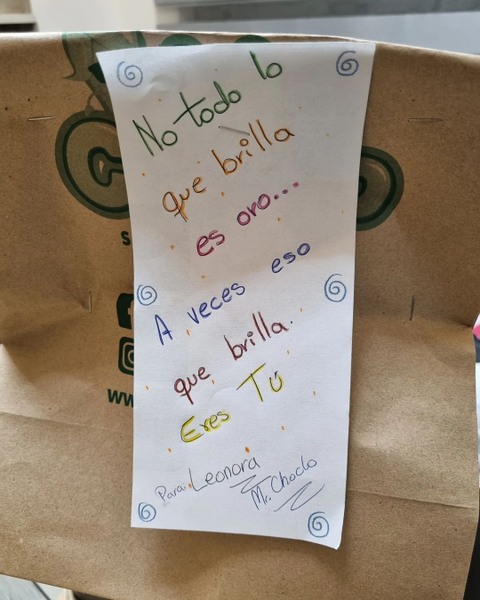 No todo lo
que brilla
es oro...
A veces eso
que brilla.
Eres Tú
Para: Leonora
Mr. Choclo